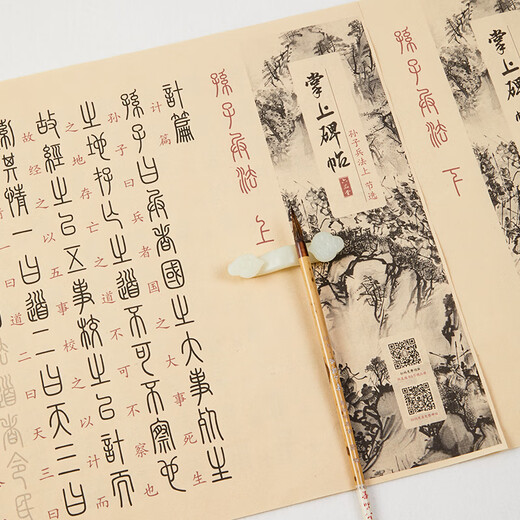 孫子兵法 下
掌上碑帖
孙子兵法上 节选
孫子兵法 上
計篇
计篇
孫子曰兵者國之大事死生
孙子曰兵者国之大事死生
之地存亡之道不可不察也
之地存亡之道不可不察也
故經之以五事校之以計而
故经之以五事校之以计而
索其情一曰道二曰天三曰
曰道二曰天三曰
道者令民